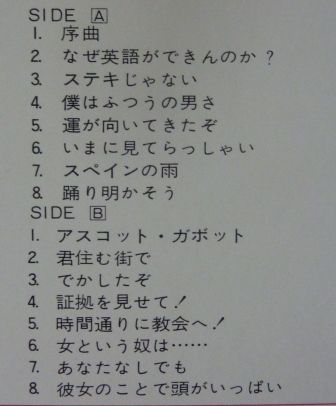 SIDE A
1. 序曲
2. なぜ英語ができんのか?
3. ステキじゃない
4. 僕はふつうの男さ
5. 運が向いてきたぞ
6. いまに見てらっしゃい
7. スペインの雨
8. 踊り明かそう
SIDE B
1. アスコット・ガボット
2. 君住む街で
3. でかしたぞ
4. 証拠を見せて!
5. 時間通りに教会へ!
6. 女という奴は……
7. あなたなしでも
8. 彼女のことで頭がいっぱい